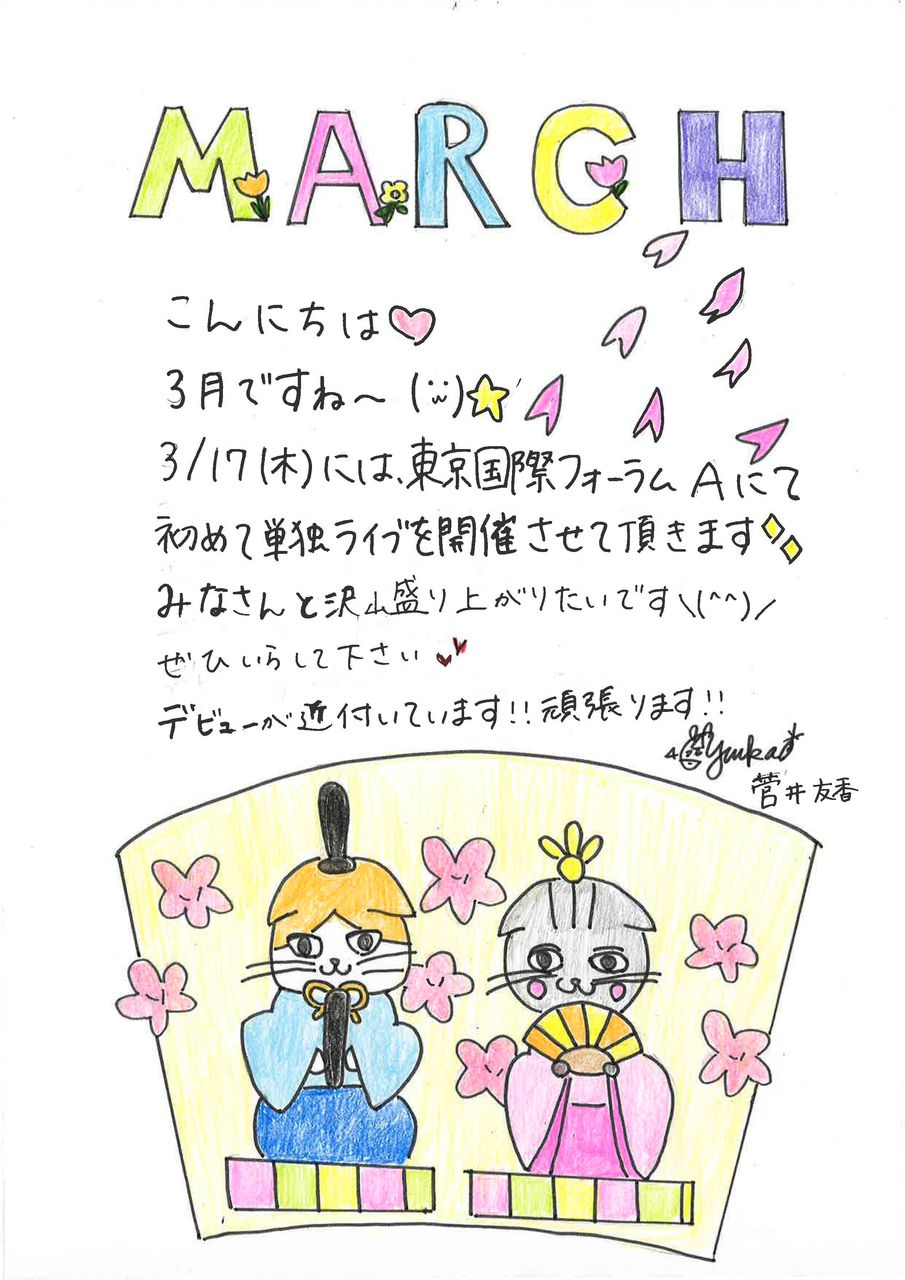 MARCH
こんにちは♡
3月ですね〜 (¨w)☆
3/17(木)には、東京国際フォーラムAにて
初めて単独ライブを開催させて頂きます
みなさんと沢山盛り上がりたいです\(^^)/
ぜひいらして下さい
デビューが近付いています!!頑張ります!!
Yuuka*
菅井友香